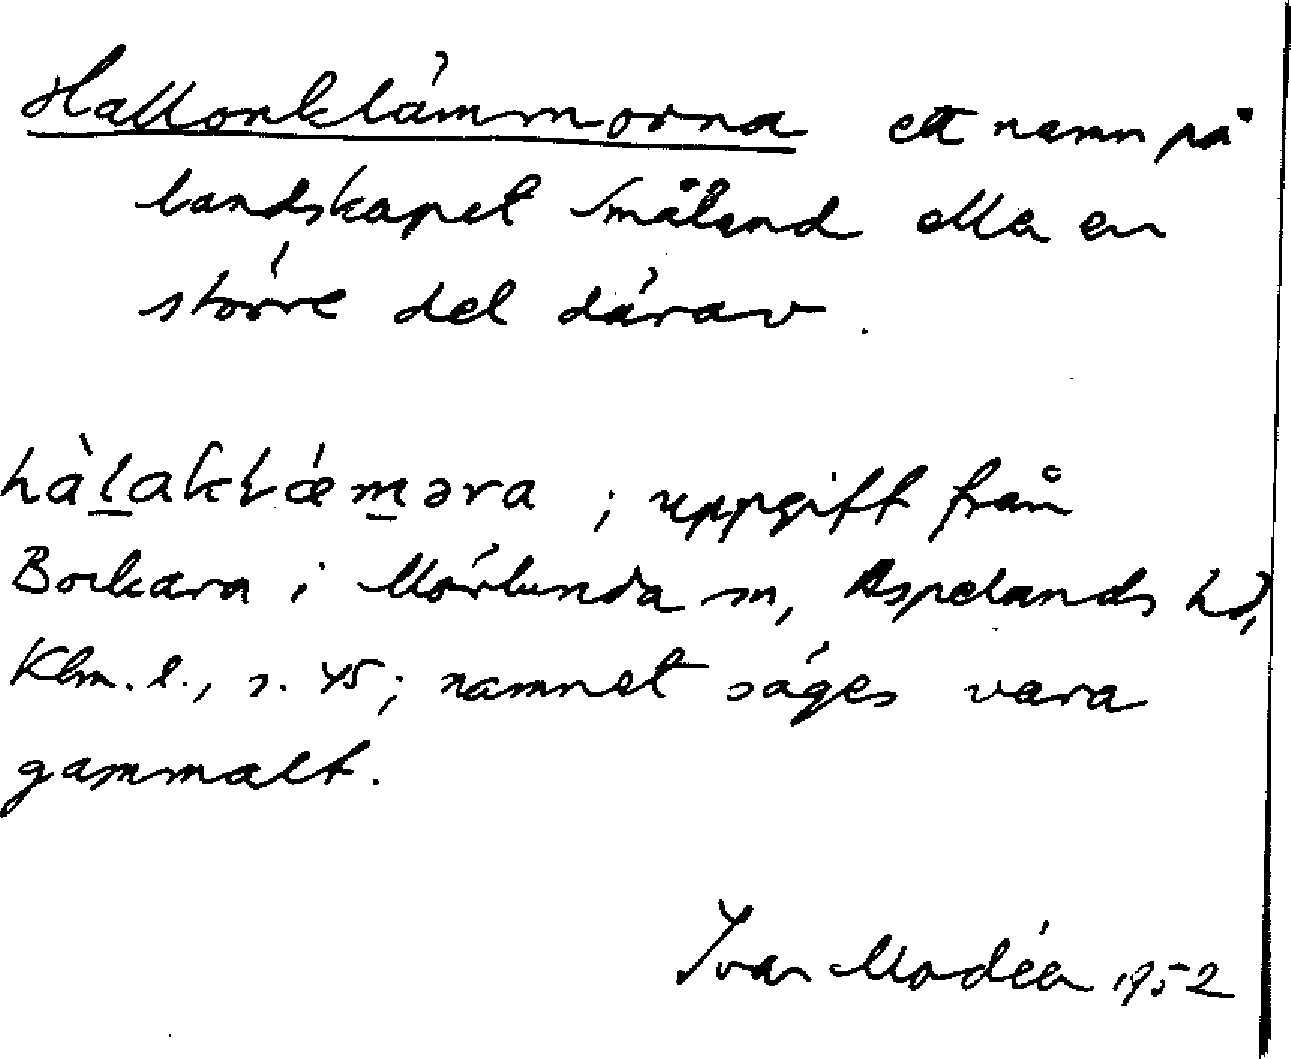 Hallonklämmorna ett namn på
landskapet Småland eller en
större del därav.
hàlakłǽməra; uppgift från
Bockara i Mörlunda sn, Aspelands hd,
Klm. l., s. 45; namnet säges vara
gammalt.
Ivar Modéer 1952